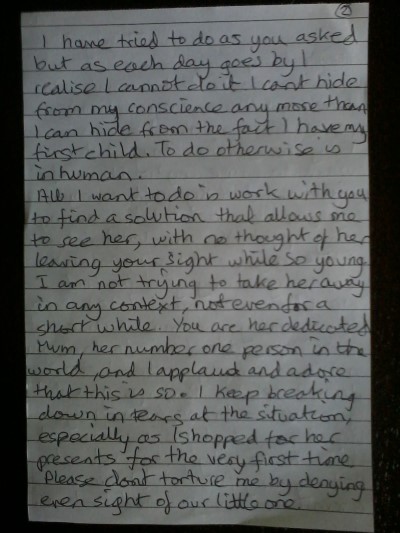 2
I have tried to do as you asked
but as each day goes by I
realise I cannot do it. I cant hide
from my conscience any more than
I can hide from the fact I have my
first child. To do otherwise is
inhuman.
All I want to do is work with you
to find a solution that allows me
to see her, with no thought of her
leaving your sight while so young.
I am not trying to take her away
in any context, not even for a
short while. You are her dedicated
Mum, her number one person in the
world, and I applaud and adore
that this is so. I keep breaking
down in tears at the situation,
especially as I shopped for her
presents for the very first time.
Please dont torture me by denying
even sight of our little one.